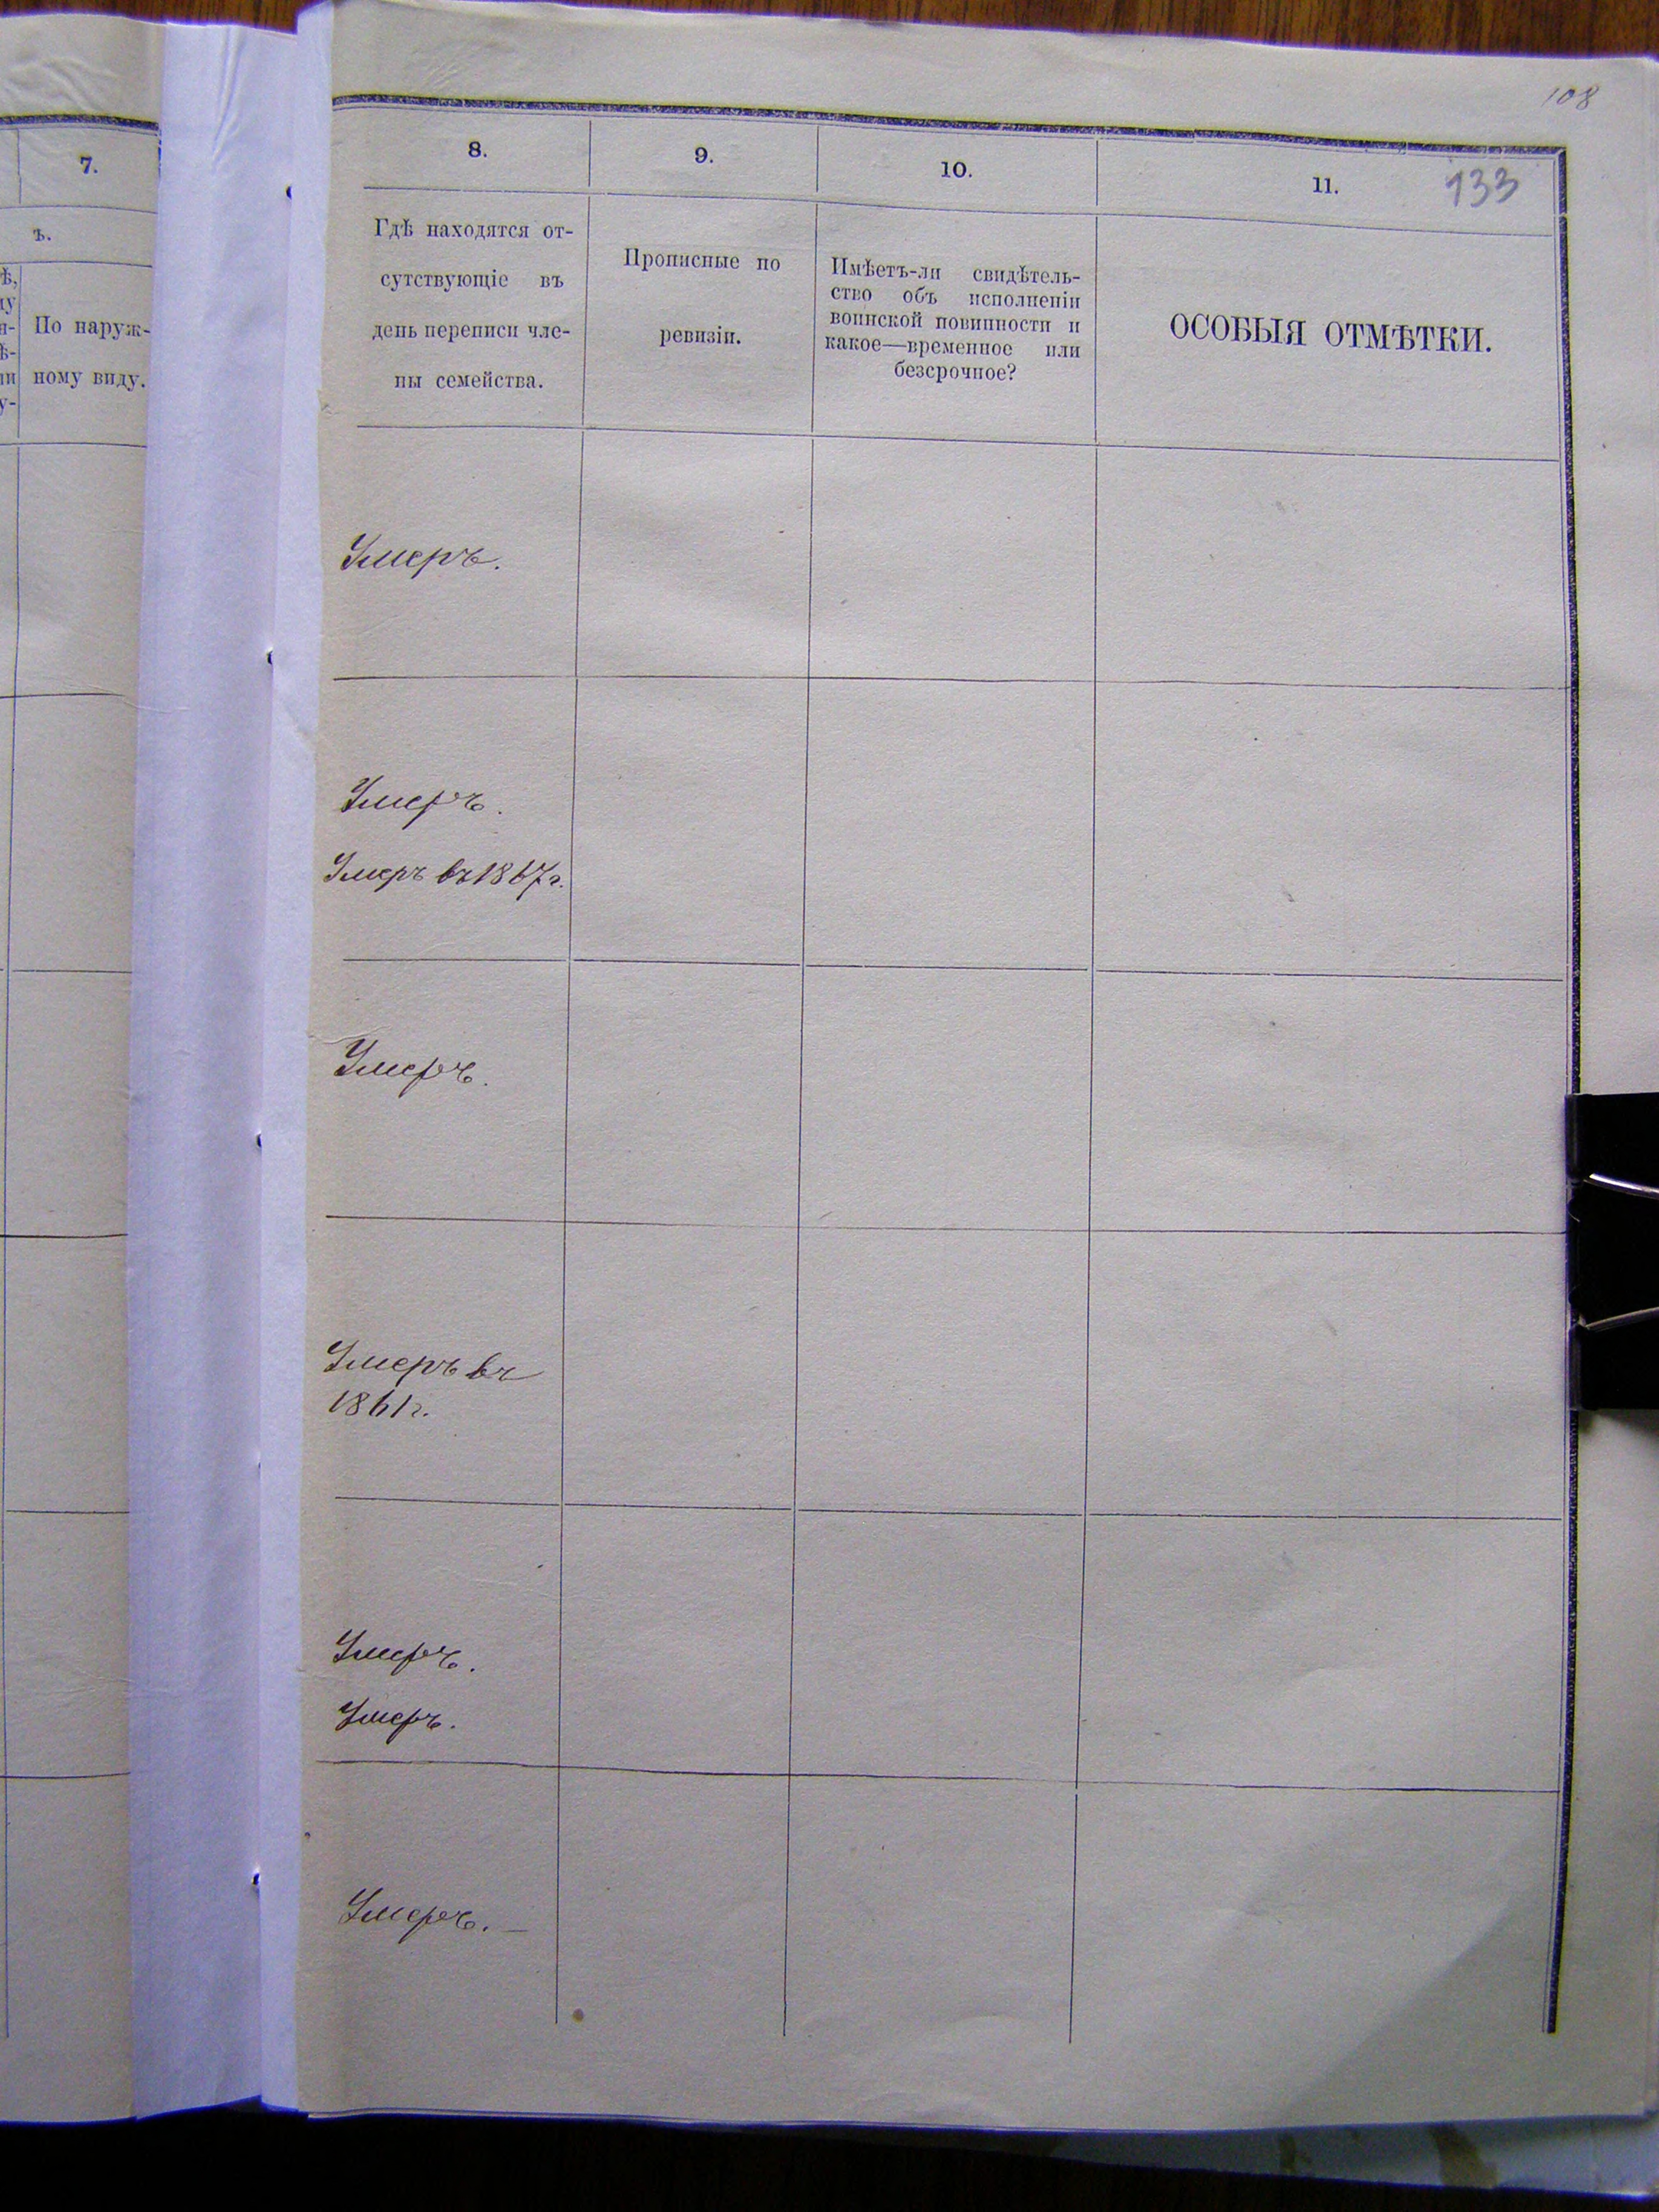 108
7.
ъ.
По наруж-
ному виду.
8.
9.
10.
11.
133
Гдѣ находятся от-
сутствующіе въ
день переписи чле-
ны семейства.
Прописные по
ревизіи.
Имѣетъ-ли свидѣтель-
ство объ исполненіи
воинской повинности и
какое—временное или
безсрочное?
ОСОБЫЯ ОТМѢТКИ.
Умеръ.
Умеръ.
Умеръ въ 1867 г.
Умеръ.
Умеръ въ
1861 г.
Умеръ.
Умеръ.
Умеръ. —